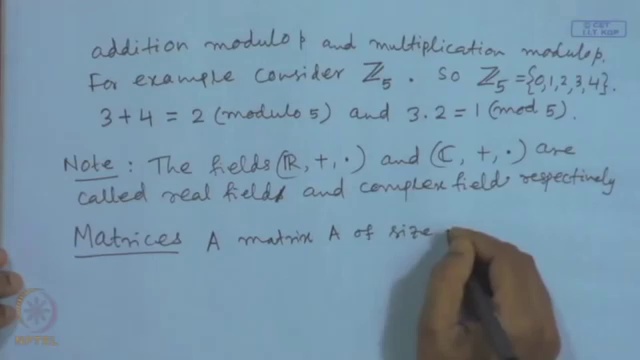 © CET
I.I.T. KGP
addition modulo p and multiplication modulo p.
For example consider ℤ₅. So ℤ₅ = {0,1,2,3,4}.
3+4 = 2 (modulo 5) and 3.2 = 1 (mod 5).
Note: The fields (ℝ, +, ·) and (ℂ, +, ·) are
called real field and complex field respectively
Matrices A matrix A of size
NPTEL